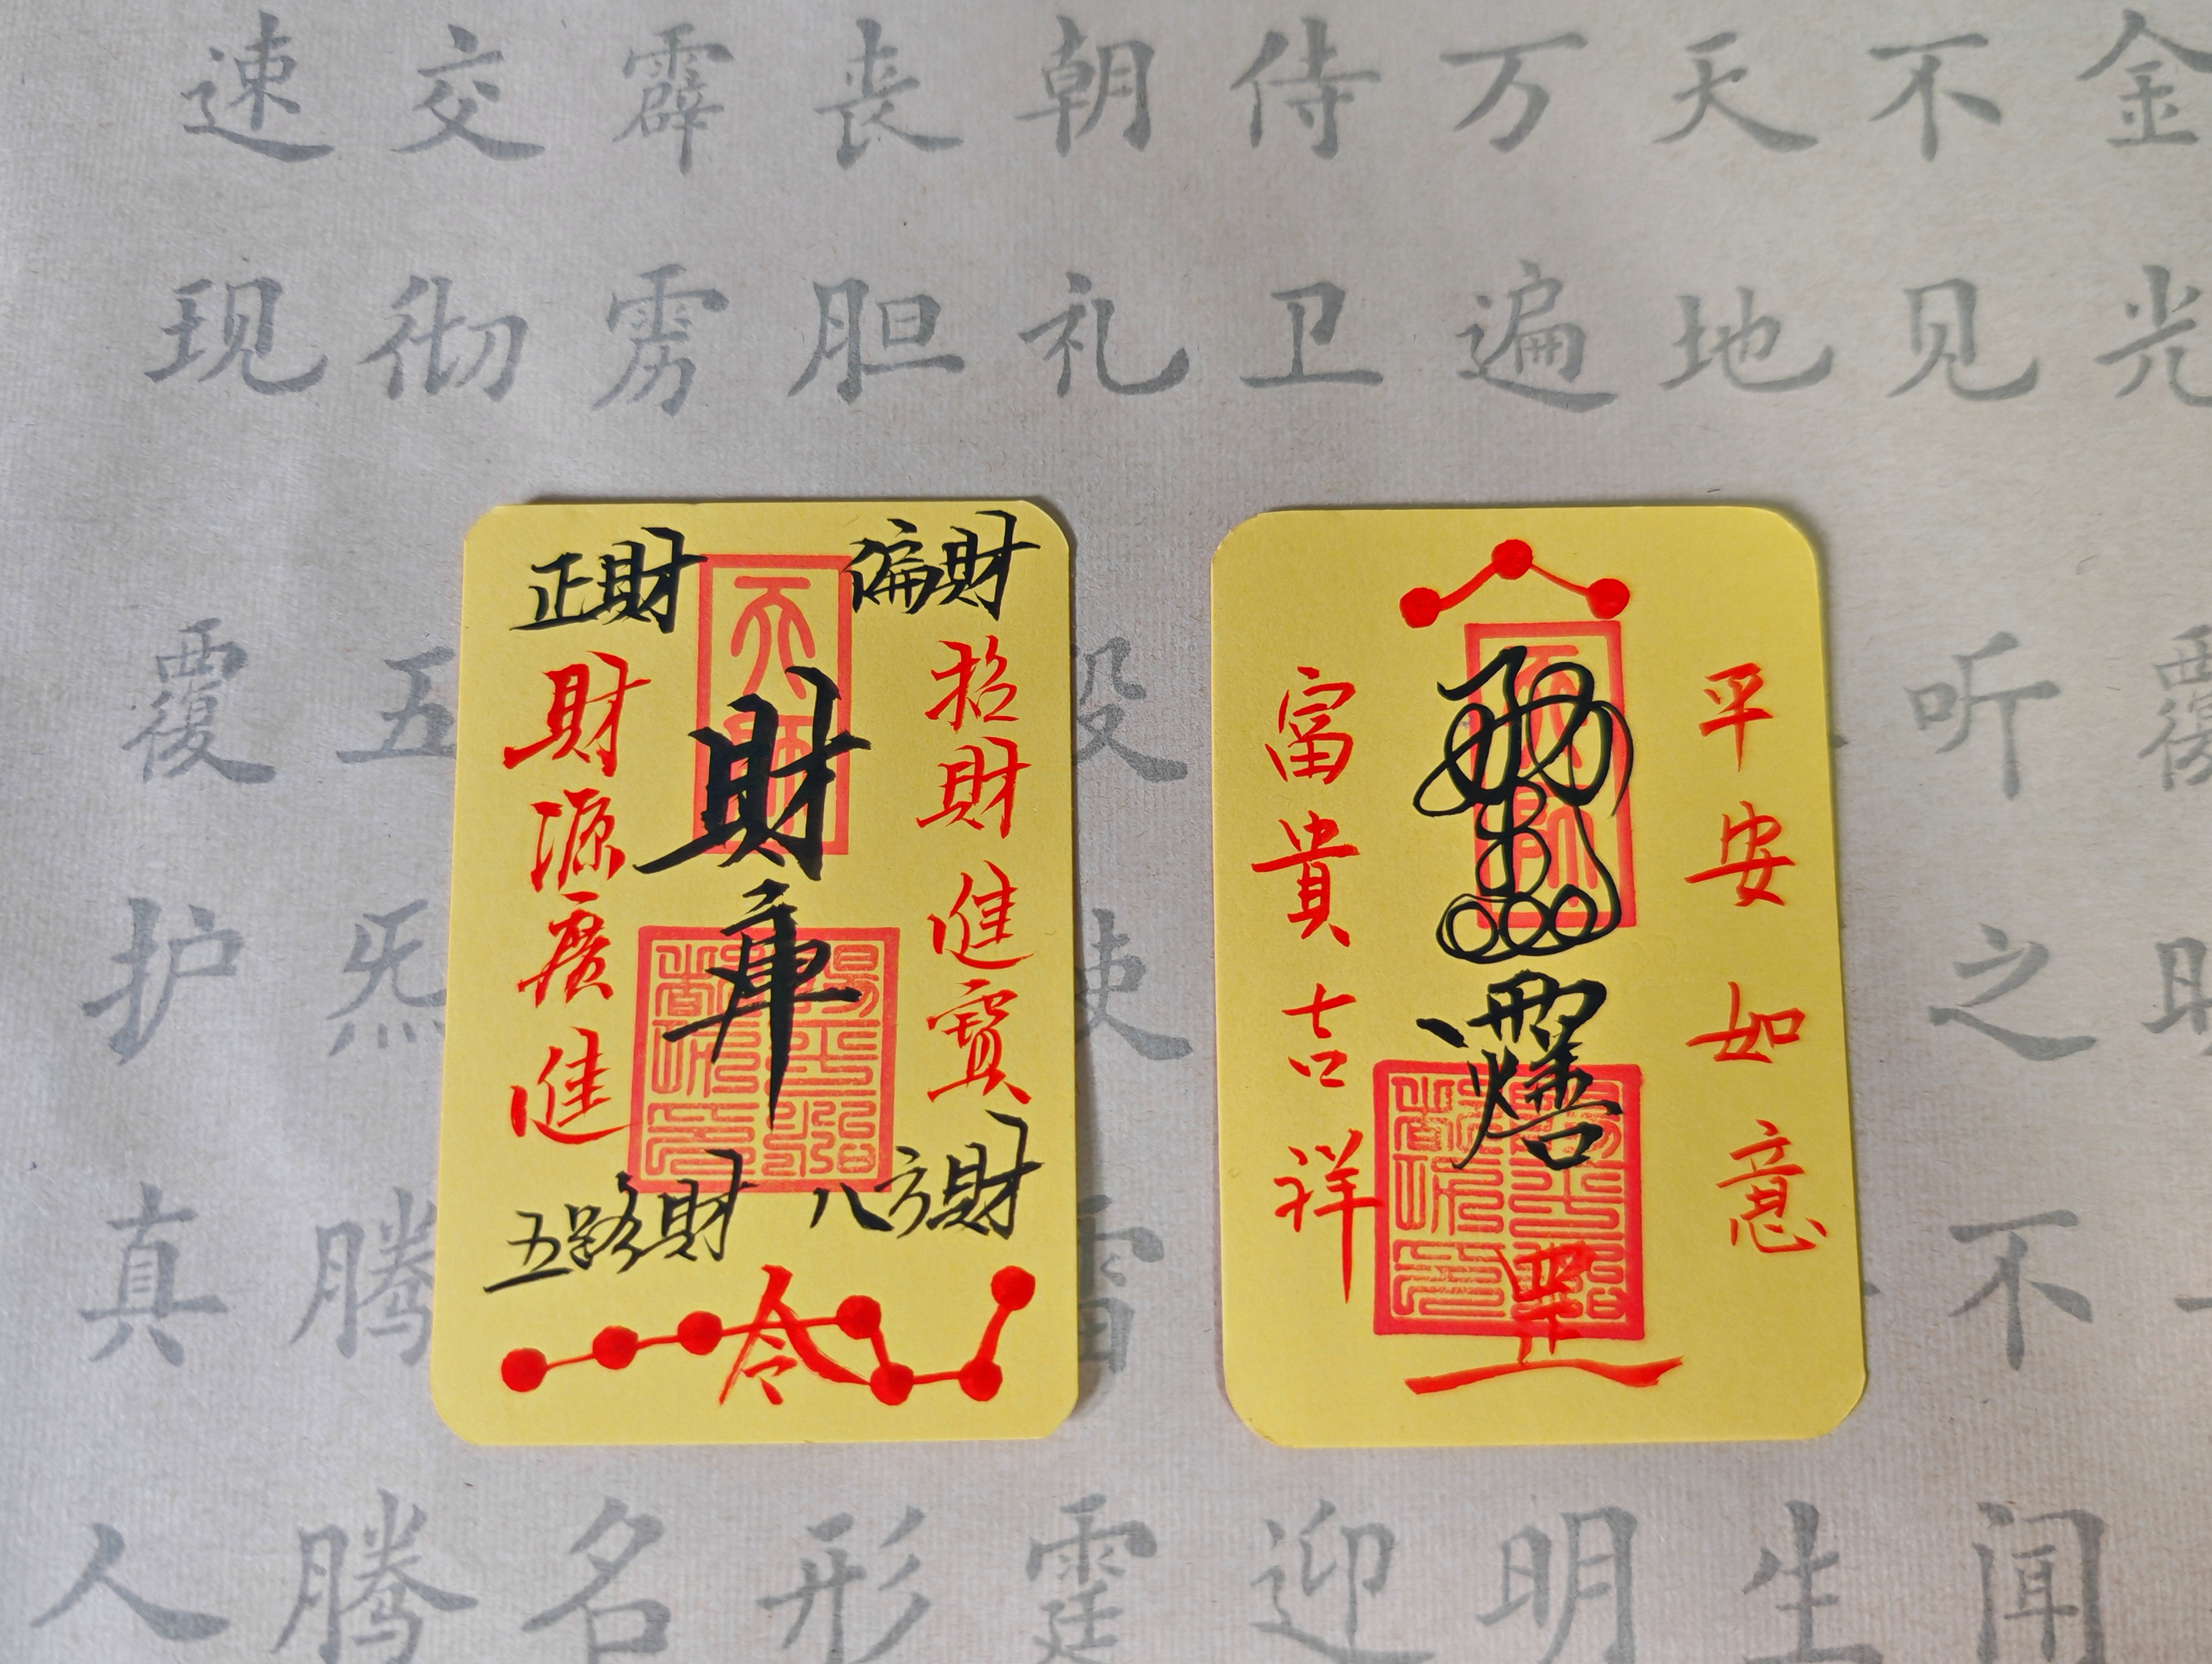 金光覆
不见听之不闻
天地生
万遍明
侍卫迎
朝礼役使雷霆
丧胆形
霹雳名
交彻五炁腾腾
速现覆护真人
平安如意
富貴吉祥
偏財
正財
招財進寶
財庫
財源廣進
八方財
五路財
令